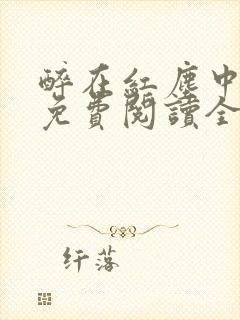 醉在紅塵中
免費閱讀全
纤落